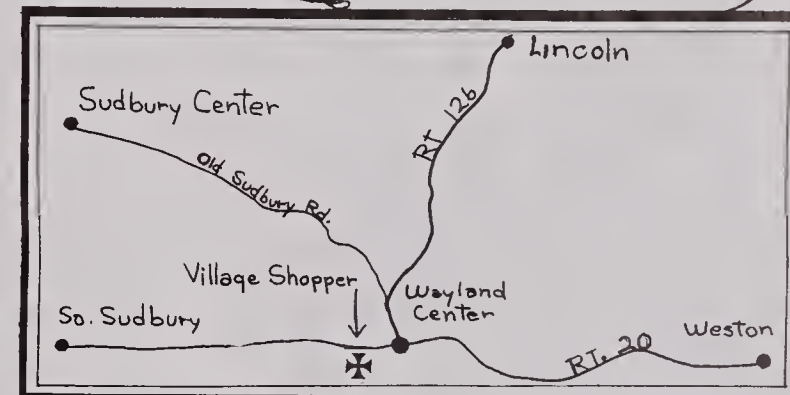 Lincoln
Sudbury Center
RT 126
Old Sudbury Rd.
Village Shopper
Wayland Center
So. Sudbury
Weston
RT. 20